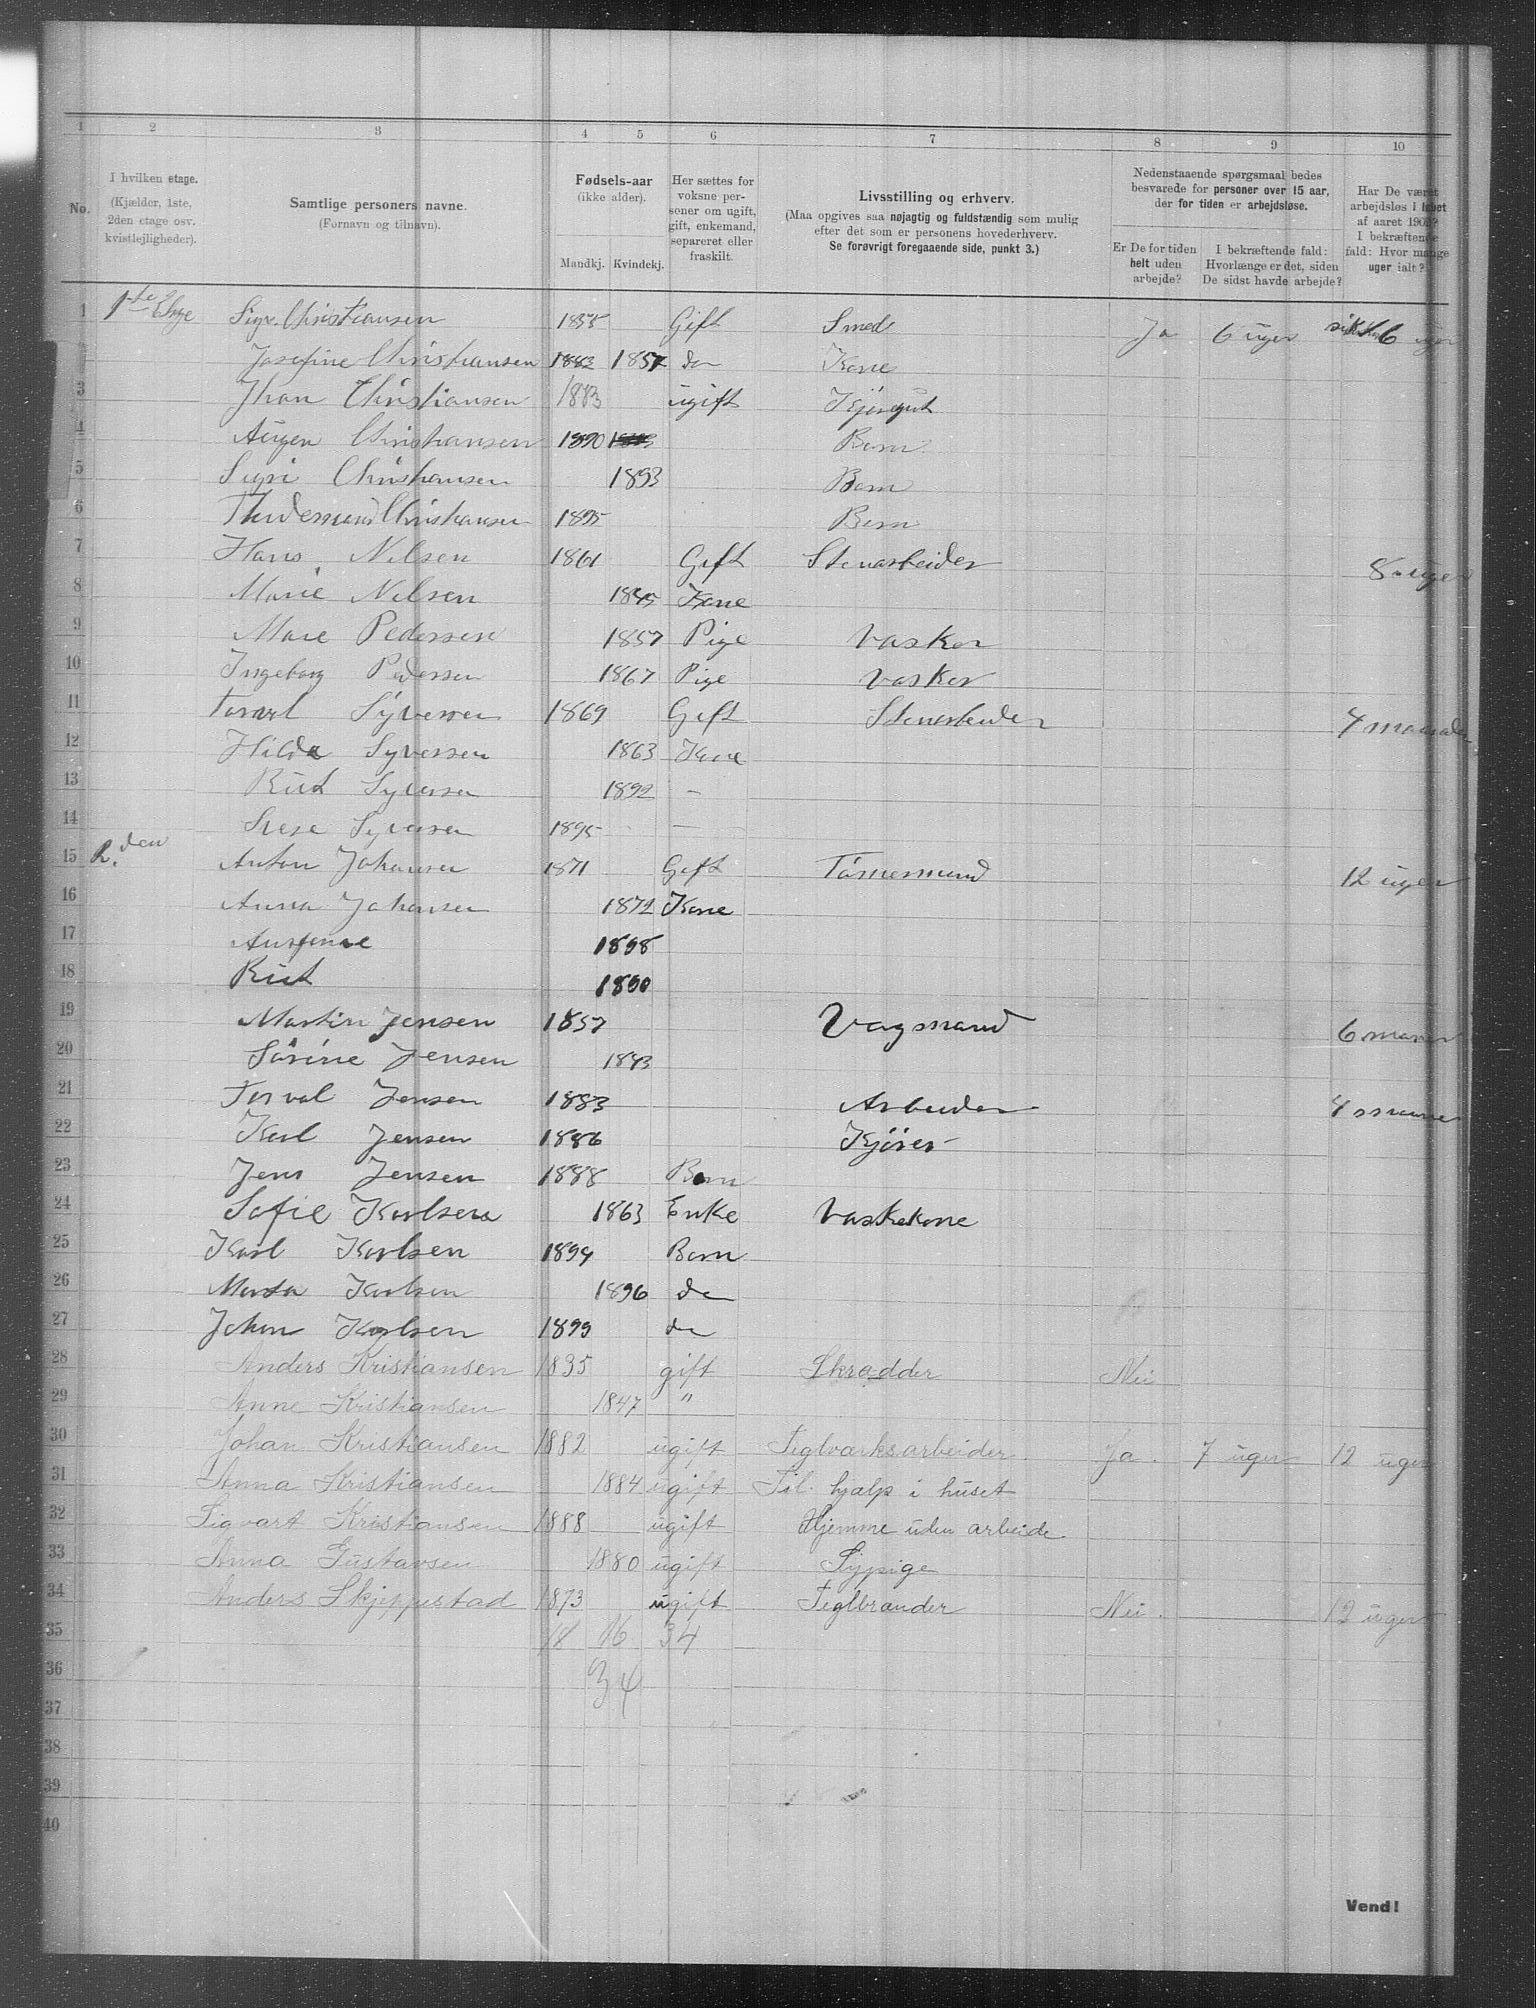 1 2 3 4 5 6 7 8 9 10
No. I hvilken etage. (Kjælder, 1ste, 2den etage osv. kvistlejligheder). Samtlige personers navne. (Fornavn og tilnavn). Fødsels-aar (ikke alder). Mandkj. Kvindekj. Her sættes for voksne personer om ugift, gift, enkemand, separeret eller fraskilt. Livsstilling og erhverv. (Maa opgives saa nøjagtig og fuldstændig som mulig efter det som er personens hovederhverv. Se forøvrigt foregaaende side, punkt 3.) Nedenstaaende spørgsmaal bedes besvarede for personer over 15 aar, der for tiden er arbejdsløse. Er De for tiden helt uden arbejde? I bekræftende fald: Hvorlænge er det, siden De sidst havde arbejde? Har De været arbejdsløs i løbet af aaret 1902? I bekræftende fald: Hvor mange uger ialt?
1 1ste Etage Christiansen Gift Smed Ja 6 uger 6 uger
Josefine Christiansen 1882 1857 do Kone
3 Jhan Christiansen 1883 ugift Kjöregut
4 Christiansen 1890 Barn
5 Sigri Christiansen 1893 Barn
6 Christiansen 1895 Barn
7 Hans Nilsen 1861 Gift Stenarbeider 8 uger
8 Marie Nilsen 1845 Kone
9 Mare Pedersen 1857 Pige Vasker
10 Ingeborg Pedersen 1867 Pige Vasker
11 Torarl Syversen 1869 Gift Stenarbeider 4 maaneder
12 Hilda Syversen 1863 Kone
13 Rut Syversen 1892 –
14 Syversen 1895 – –
15 2.den Anton Johansen 1871 Gift Törnesmend 12 uger
16 Anna Johansen 1872 Kone
17 1898
18 Rut 1890
19 Martin Jensen 1857 Vagsmand 6 maner
20 Sörine Jensen 1843
21 Torval Jensen 1883 Arbeider 4 maaner
22 Karl Jensen 1886 Kjörer
23 Jens Jensen 1888 Barn
24 Sofie Karlsen 1863 Enke Vaskekone
25 Karl Karlsen 1894 Barn
26 Marta Karlsen 1896 do
27 Johan Karlsen 1899 do
28 Anders Kristiansen 1835 gift Skrædder Nei
29 Anne Kristiansen 1847 "
30 Johan Kristiansen 1882 ugift Teglværksarbeider Ja. 7 uger 12 uger
31 Anna Kristiansen 1884 ugift Til hjælp i huset
32 Sigvart Kristiansen 1888 ugift Hjemme uden arbeide
33 Anna Gustavsen 1880 ugift Sypige
34 Anders Skjeppestad 1873 ugift Teglbrænder Nei. 12 uger
35 18 16 34
36 34
37
38
39
40
Vend!